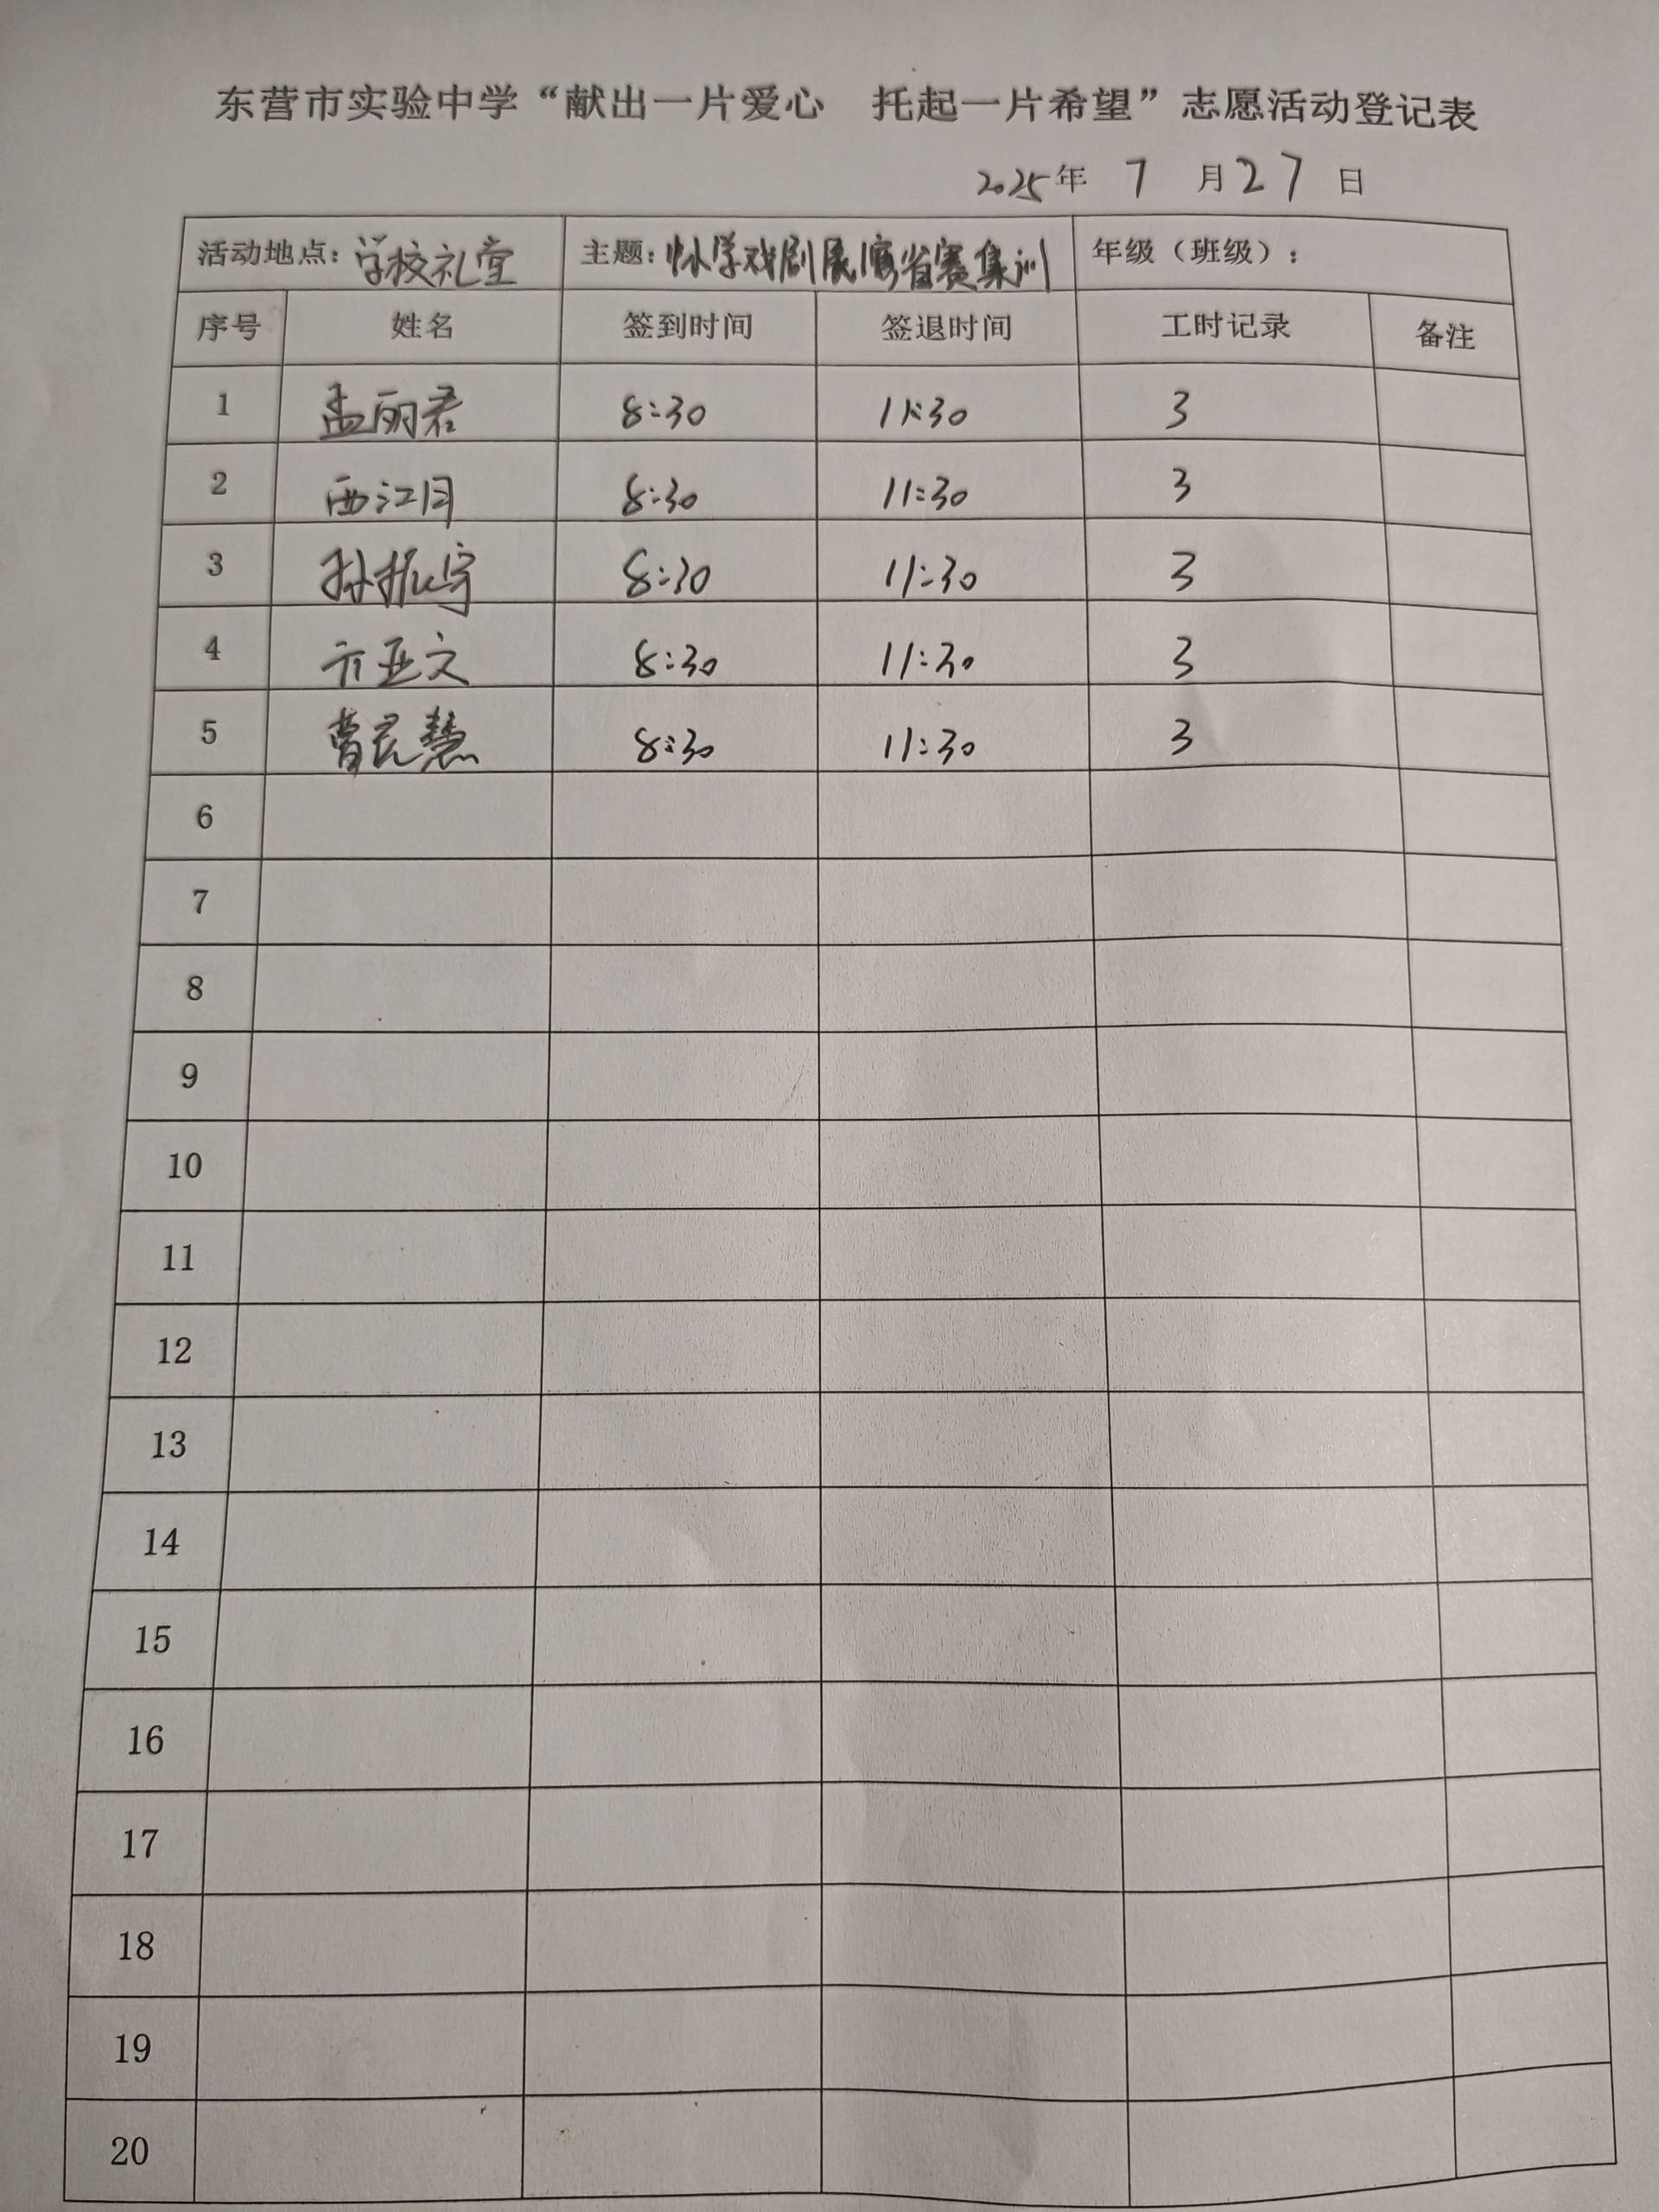 东营市实验中学“献出一片爱心 托起一片希望”志愿活动登记表
2025年 7 月 27 日
活动地点：学校礼堂 主题：中小学戏剧展演省赛集训 年级（班级）：
序号 姓名 签到时间 签退时间 工时记录 备注
1 孟丽君 8:30 11:30 3
2 西江月 8:30 11:30 3
3 孙振宇 8:30 11:30 3
4 亓亚文 8:30 11:30 3
5 曹民慧 8:30 11:30 3
6
7
8
9
10
11
12
13
14
15
16
17
18
19
20